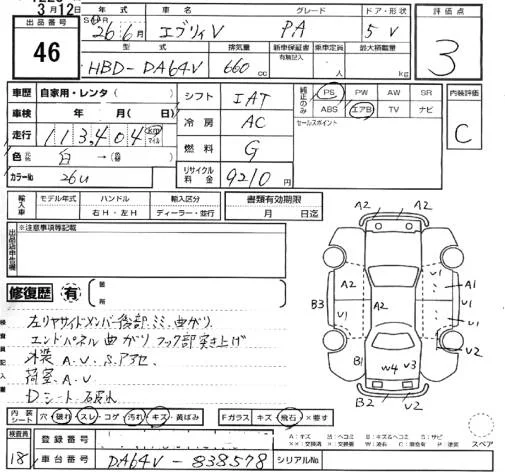 3月12日
出品番号
46
年式
H
26年6月
車名
エブリィV
グレード
PA
ドア・形状
5V
評価点
3
型式
HBD-DA64V
排気量
660cc
新車保証書
有無記入
乗車定員
人
最大積載量
kg
車歴
自家用・レンタ( )
車検
年 月( 日)
走行
113,404
km
マイル
色
白
→(
カラーNo
26U
シフト
IAT
冷房
AC
燃料
G
リサイクル料金
9210円
純正のみ
PS PW AW SR
ABS エアB TV ナビ
セールスポイント
内装評価
C
輸入車
モデル年式
ハンドル
右H・左H
輸入区分
ディーラー・並行
書類有効期限
月 日迄
※注意事項等記載
修復歴
有
箇所
検査員記入書
左リヤサイドメンバー後部ミミ曲がり
エンドパネル曲がり フック部突き上げ
外装A.U.S.アセ.
荷室.A.U
Dシート
A2
A2
A2
A2
B3
U1
V1
A1
U1
V1
U2
B1
B1
W4
V3
B2
U2
内装シート
穴・破れ・スレ・コゲ・汚れ・キズ・黄ばみ
Fガラス
キズ・飛石・×要す
A:キズ
スペア
検査員
181
登録番号
車台番号
DA64V-838578
シリアルNo